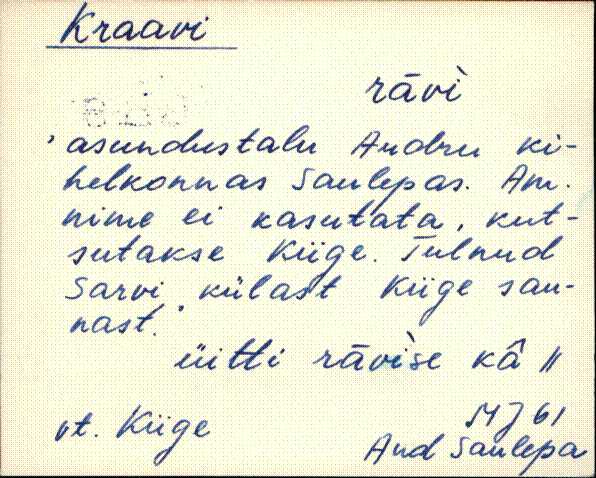 Kraavi
rāvì
'asundustalu Audru ki-
helkonnas Saulepas. Am.
nime ei kasutata, kut-
sutakse Kiige. Tulnud
Sarvi külast Kiige sau-
nast.'
üitti rāvìse kâ ||
vt. Kiige
61
Aud Saulepa